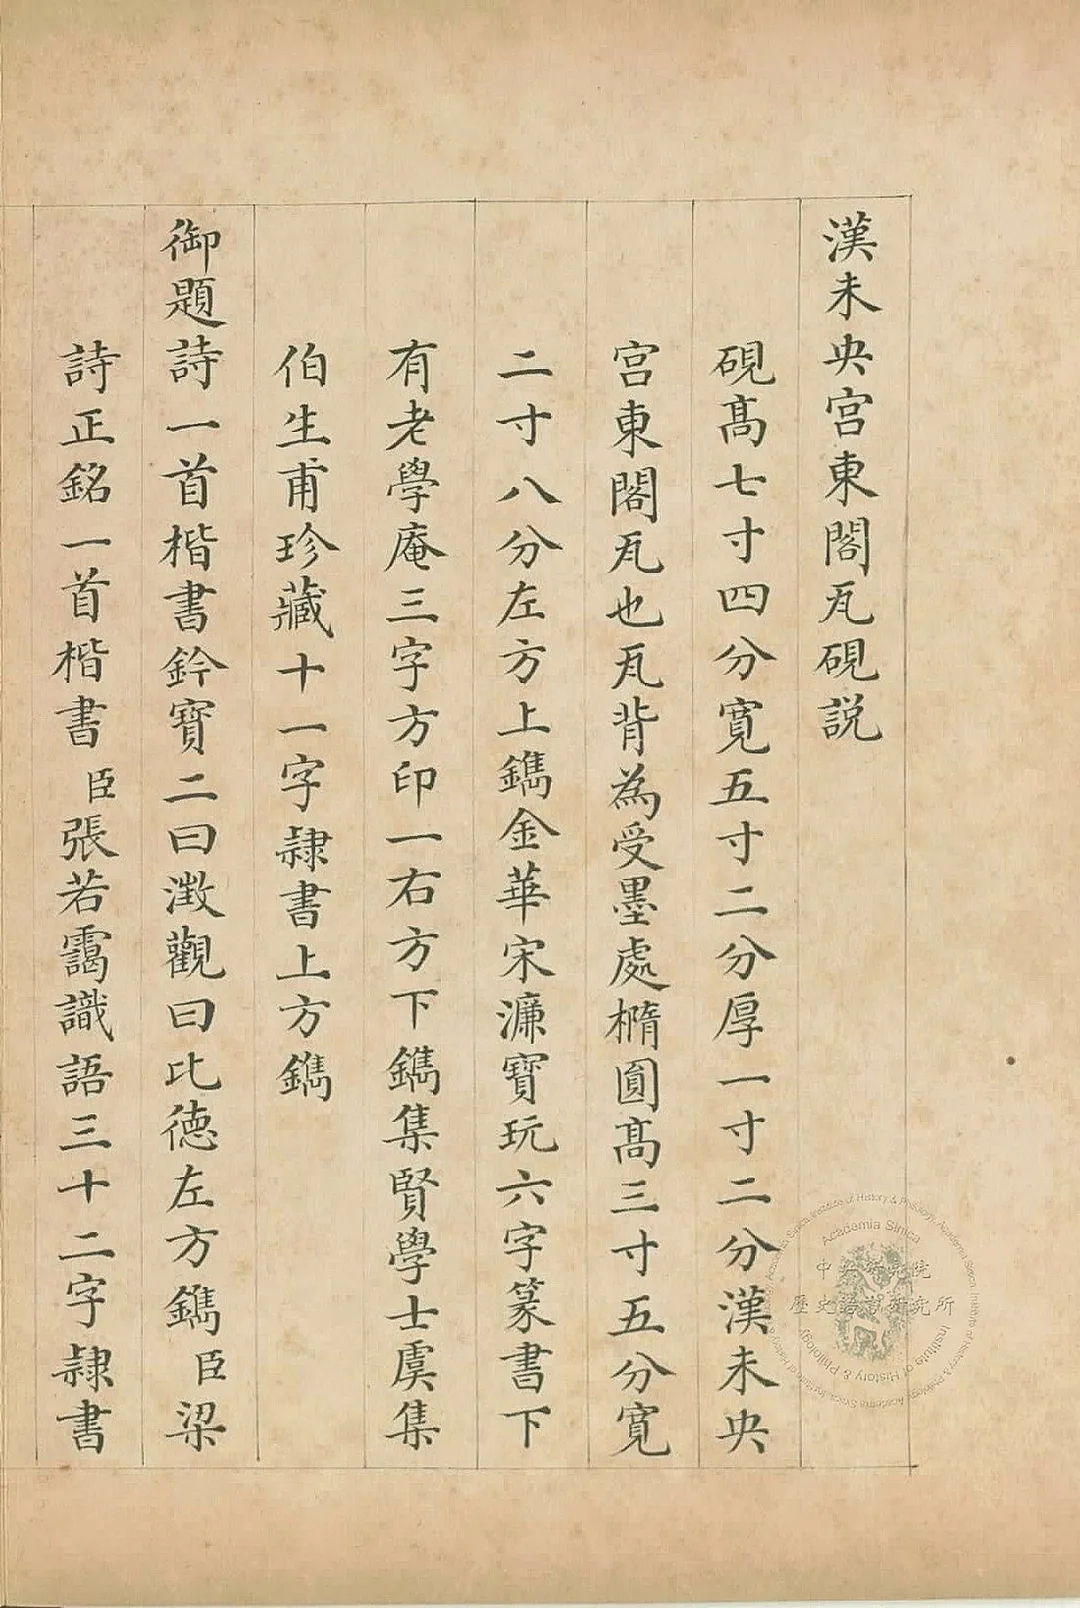 漢未央宮東閣瓦硯說
硯髙七寸四分寛五寸二分厚一寸二分漢未央
宮東閣瓦也瓦背為受墨處橢圓髙三寸五分寛
二寸八分左方上鐫金華宋濂寶玩六字篆書下
有老學庵三字方印一右方下鐫集賢學士虞集
伯生甫珍藏十一字隸書上方鐫
御題詩一首楷書鈐寶二曰澂觀曰比德左方鐫臣梁
詩正銘一首楷書臣張若靄識語三十二字隸書
Academia Sinica
中央研究院
歷史語言研究所
Institute of History & Philology